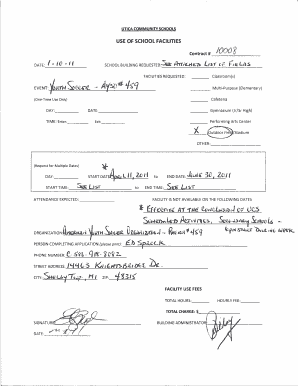 UTICA COMMUNITY SCHOOLS
USE OF SCHOOL FACILITIES
Contract # 10008
DATE: 1-10-11 SCHOOL BUILDING REQUESTED: SEE ATTACHED LIST OF FIELDS
FACILITIES REQUESTED: Classroom(s)
EVENT YOUTH SOCCER - AYSO #459 Multi-Purpose (Elementary)
(One-Time Use Only) Cafeteria
DAY: DATE: Gymnasium (Jr/Sr High)
TIME: From: to: Performing Arts Center
X Outdoor Field/Stadium
OTHER:
(Request for Multiple Dates) *
DAY START DATE: APRIL 11, 2011 END DATE: JUNE 30, 2011
START TIME: SEE LIST to END TIME: SEE LIST
ATTENDANCE EXPECTED: FACILITY IS NOT AVAILABLE ON THE FOLLOWING DATES:
* EFFECTIVE AT THE CONCLUSION OF UCS
SCHEDULED ACTIVITIES, SECONDARY SCHOOLS -
ORGANIZATION: AMERICAN YOUTH SOCCER ORGANIZATION - REGION #459
PERSON COMPLETING APPLICATION (please print) ED SPECK
PHONE NUMBER:
STREET ADDRESS: KNIGHTSBRIDGE DR.
CITY: SHELBY TWP, MI ZIP: 48315
FACILITY USE FEES
TOTAL HOURS: HOURLY FEE:
TOTAL CHARGE: $
SIGNATURE: BUILDING ADMINISTRATOR:
DATE